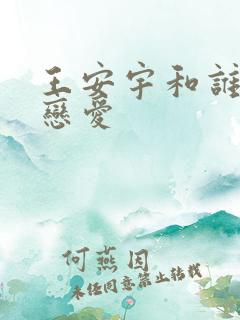 王安宇和誰
戀愛
何燕因
未经同意禁止转载